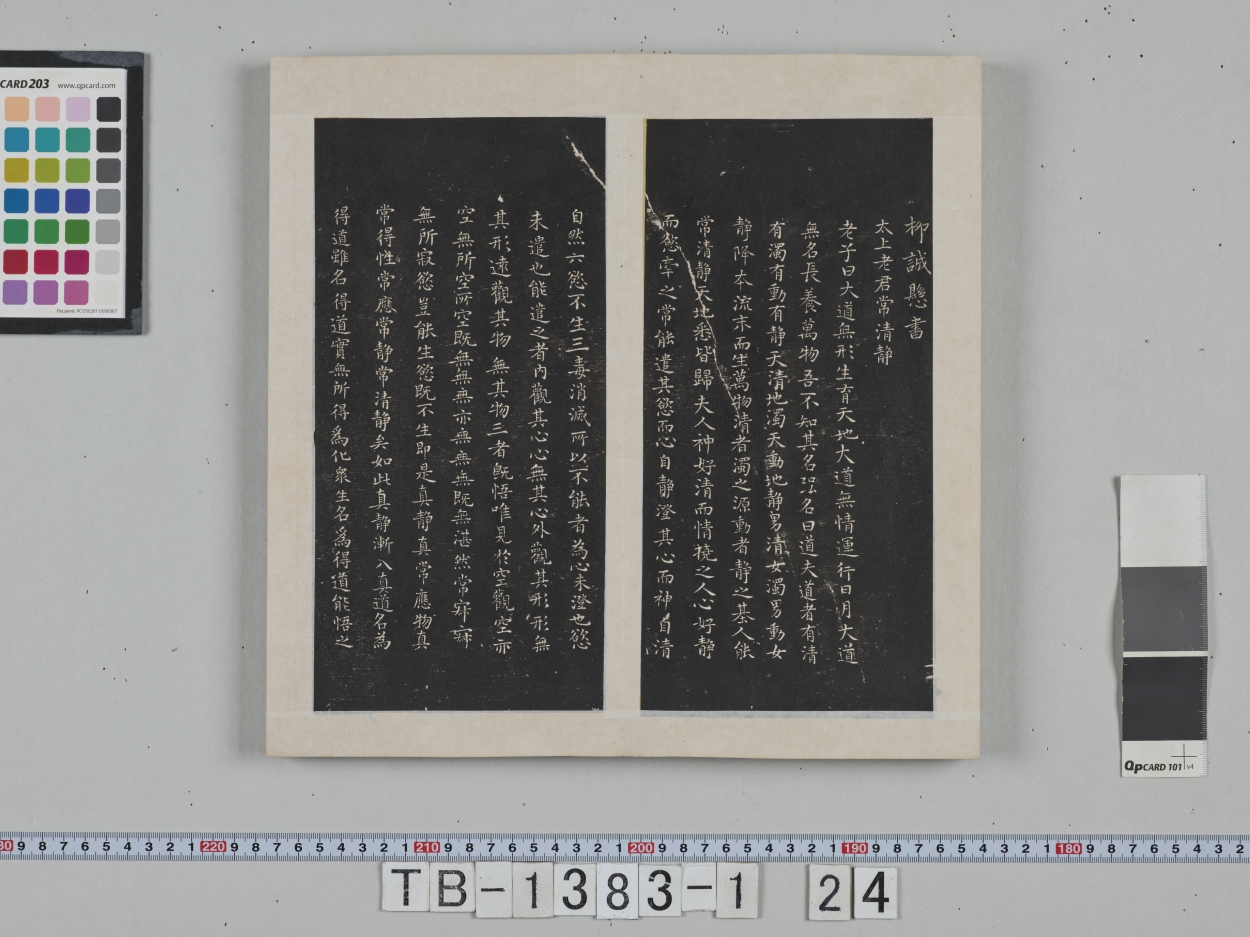 柳誠懸書
太上老君常清静
老子曰大道無形生育天地大道無情運行日月大道
無名長養萬物吾不知其名强名曰道夫道者有清
有濁有動有静天清地濁天動地静男清女濁男動女
静降本流末而生萬物清者濁之源動者静之基人能
常清静天地悉皆歸夫人神好清而情撓之人心好静
而慾牽之常能遣其慾而心自静澄其心而神自清
自然六慾不生三毒消滅所以不能者為心未澄也慾
未遣也能遣之者內觀其心心無其心外觀其形形無
其形遠觀其物無其物三者既悟唯見於空觀空亦
空無所空所空既無無無亦無無無既無湛然常寂寂
無所寂慾豈能生慾既不生即是真静真常應物真
常得性常應常静常清静矣如此真静漸入真道名為
得道雖名得道實無所得為化衆生名為得道能悟之
CARD 203 www.qpcard.com
QpCARD 101 v4
30 9 8 7 6 5 4 3 2 1 220 9 8 7 6 5 4 3 2 1 210 9 8 7 6 5 4 3 2 1 200 9 8 7 6 5 4 3 2 1 190 9 8 7 6 5 4 3 2 1 180 9 8 7 6 5 4 3 2
TB-1383-1 24